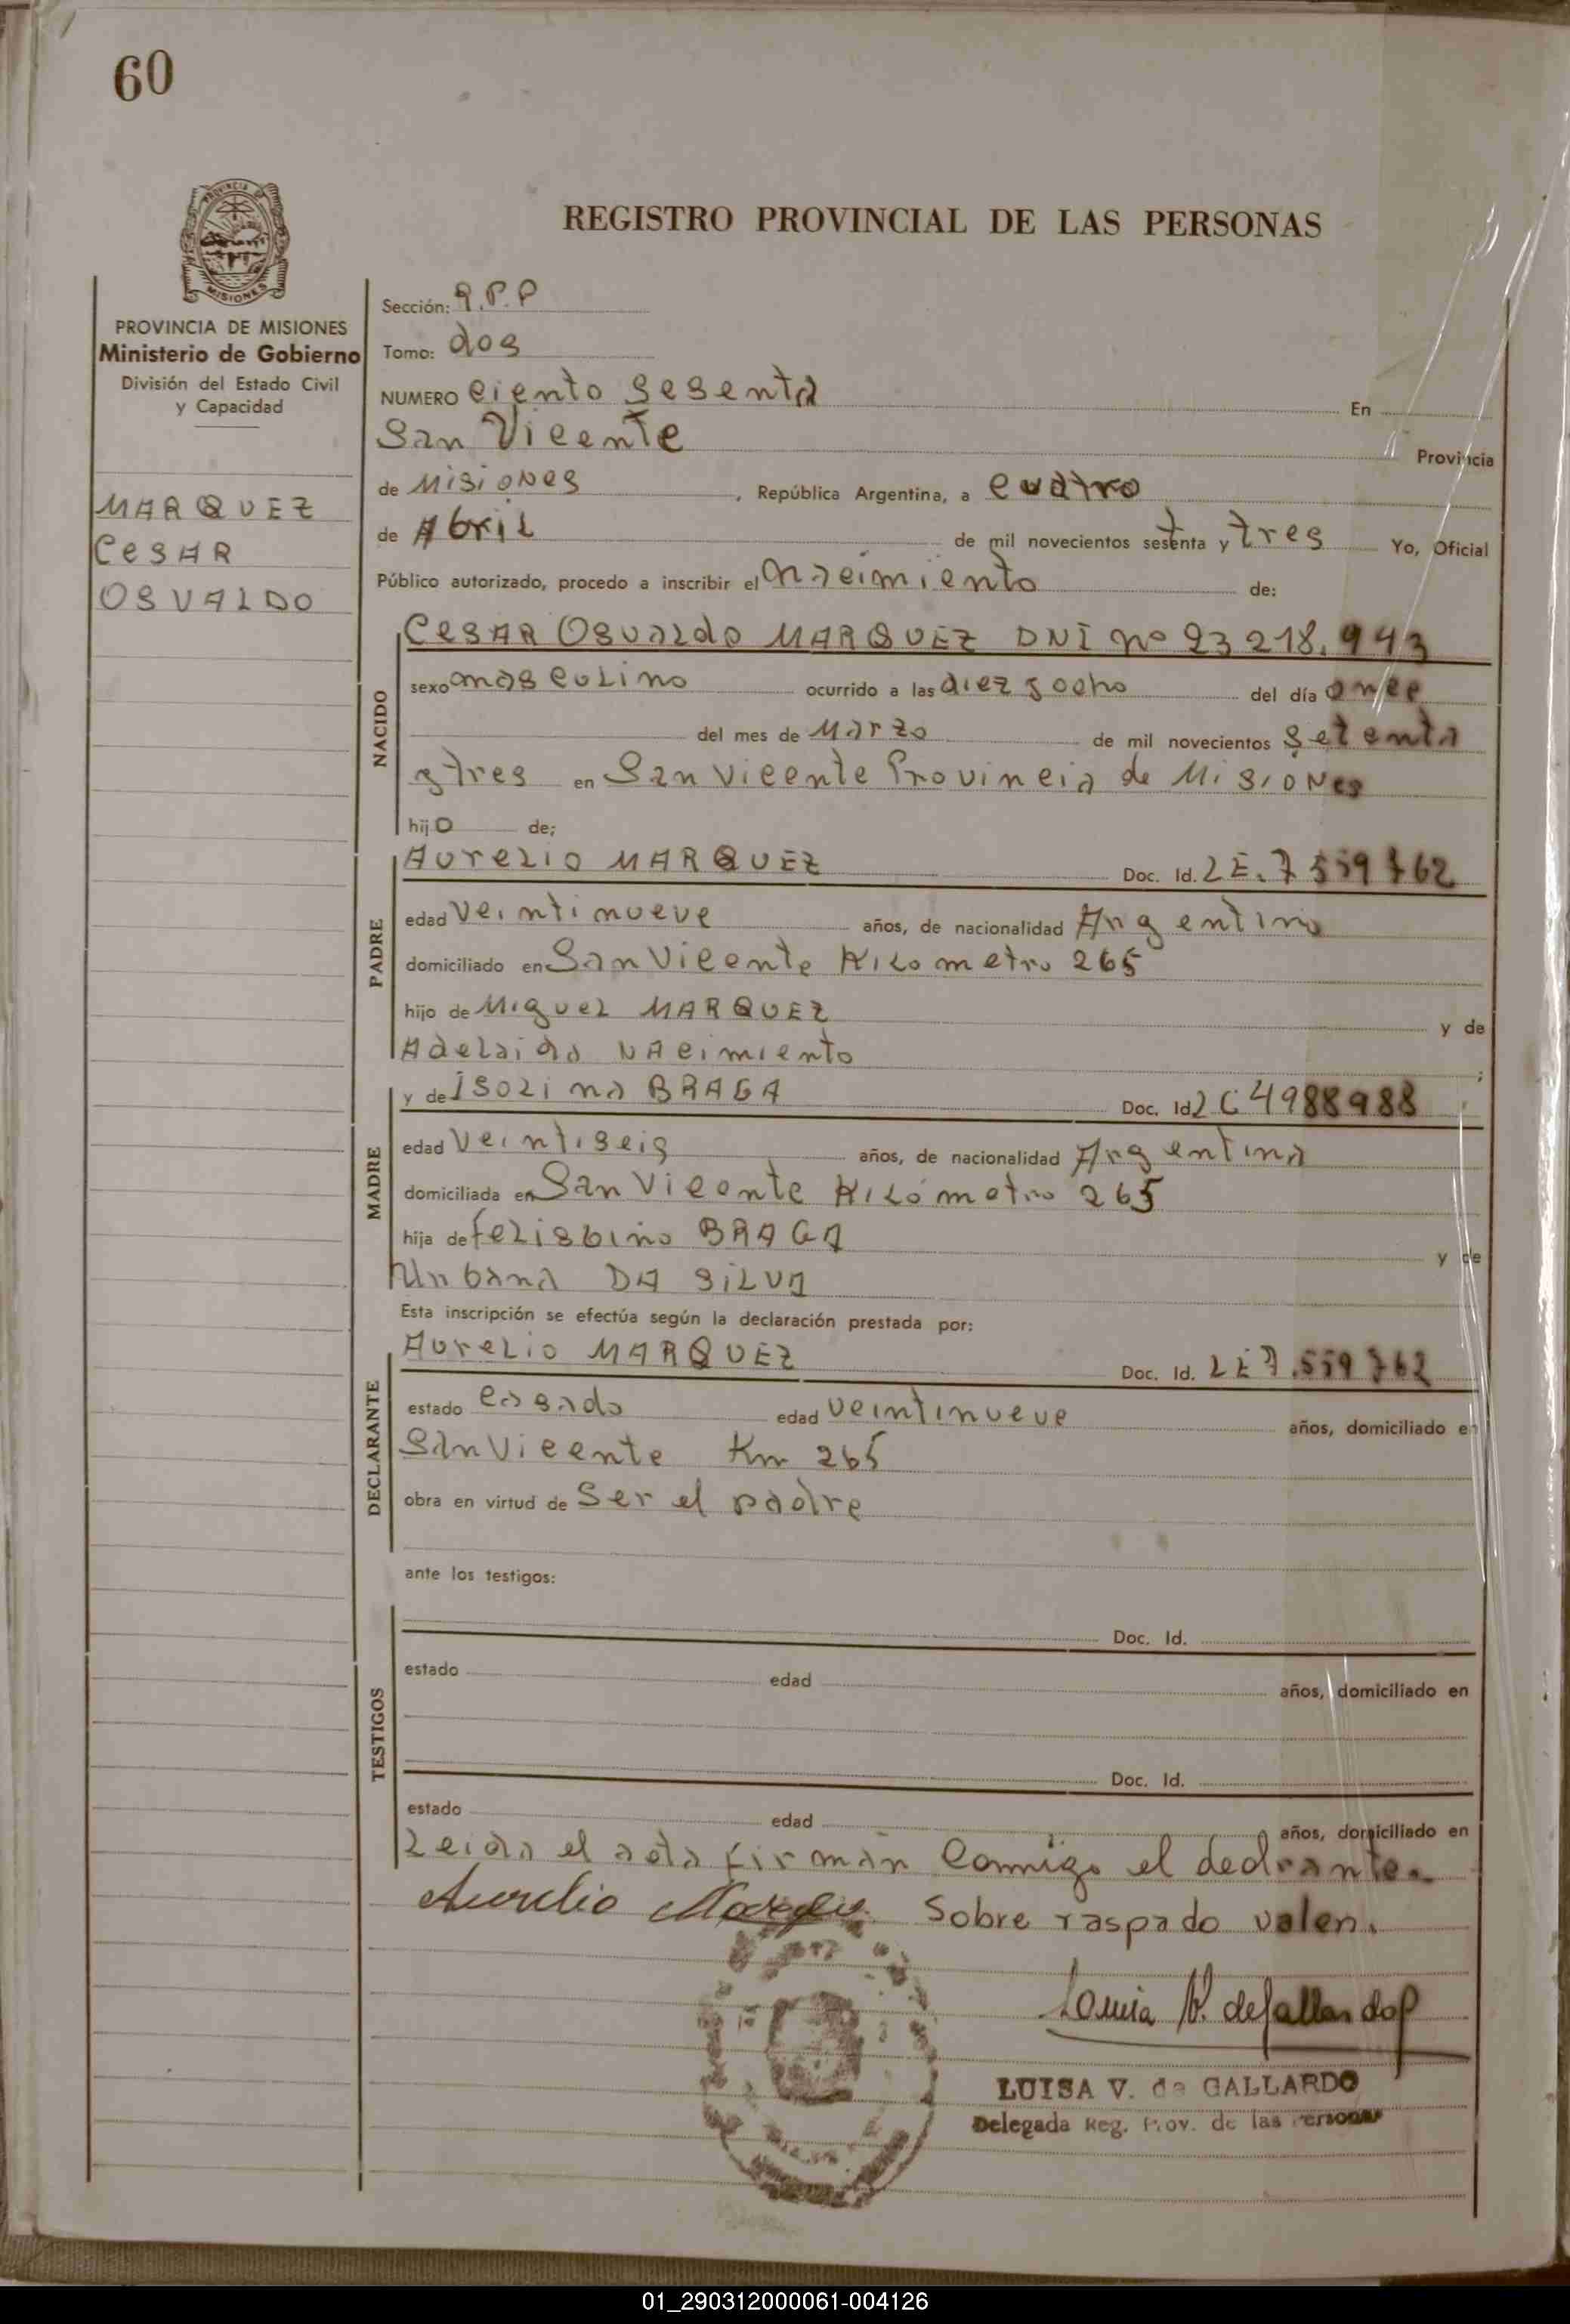 60
PROVINCIA DE
MISIONES
REGISTRO PROVINCIAL DE LAS PERSONAS
PROVINCIA DE MISIONES
Ministerio de Gobierno
División del Estado Civil
y Capacidad
MARQUEZ
CESAR
OSVALDO
Sección: R.P.P
Tomo: dos
NUMERO ciento sesenta En
San Vicente Provincia
de Misiones, República Argentina, a cuatro
de Abril de mil novecientos setenta y tres Yo, Oficial
Público autorizado, procedo a inscribir el nacimiento de:
NACIDO
CESAR OSVALDO MARQUEZ DNI nº 23 218.943
sexo masculino ocurrido a las diez y ocho del día once
del mes de Marzo de mil novecientos setenta
y tres en San Vicente Provincia de Misiones
hijo de;
PADRE
Aurelio MARQUEZ Doc. Id. LE. 7 559 762
edad veintinueve años, de nacionalidad Argentino
domiciliado en San Vicente Kilometro 265
hijo de Miguel MARQUEZ y de
Adelaida Nacimiento ;
MADRE
y de Isolina BRAGA Doc. Id LC 4988988
edad veintiseis años, de nacionalidad Argentina
domiciliada en San Vicente Kilómetro 265
hija de felisbino BRAGA y de
Urbana DA SILVA
Esta inscripción se efectúa según la declaración prestada por:
DECLARANTE
Aurelio MARQUEZ Doc. Id. LE 7.559 762
estado casado edad veintinueve años, domiciliado en
San Vicente Km 265
obra en virtud de ser el padre
ante los testigos:
TESTIGOS
Doc. Id.
estado edad años, domiciliado en
Doc. Id.
estado edad años, domiciliado en
Leida el acta firman conmigo el declarante.
Aurelio Marquez. Sobre raspado valen.
Louisa V. de Gallardo
LUISA V. de GALLARDO
Delegada Reg. Prov. de las Personas
01_290312000061-004126